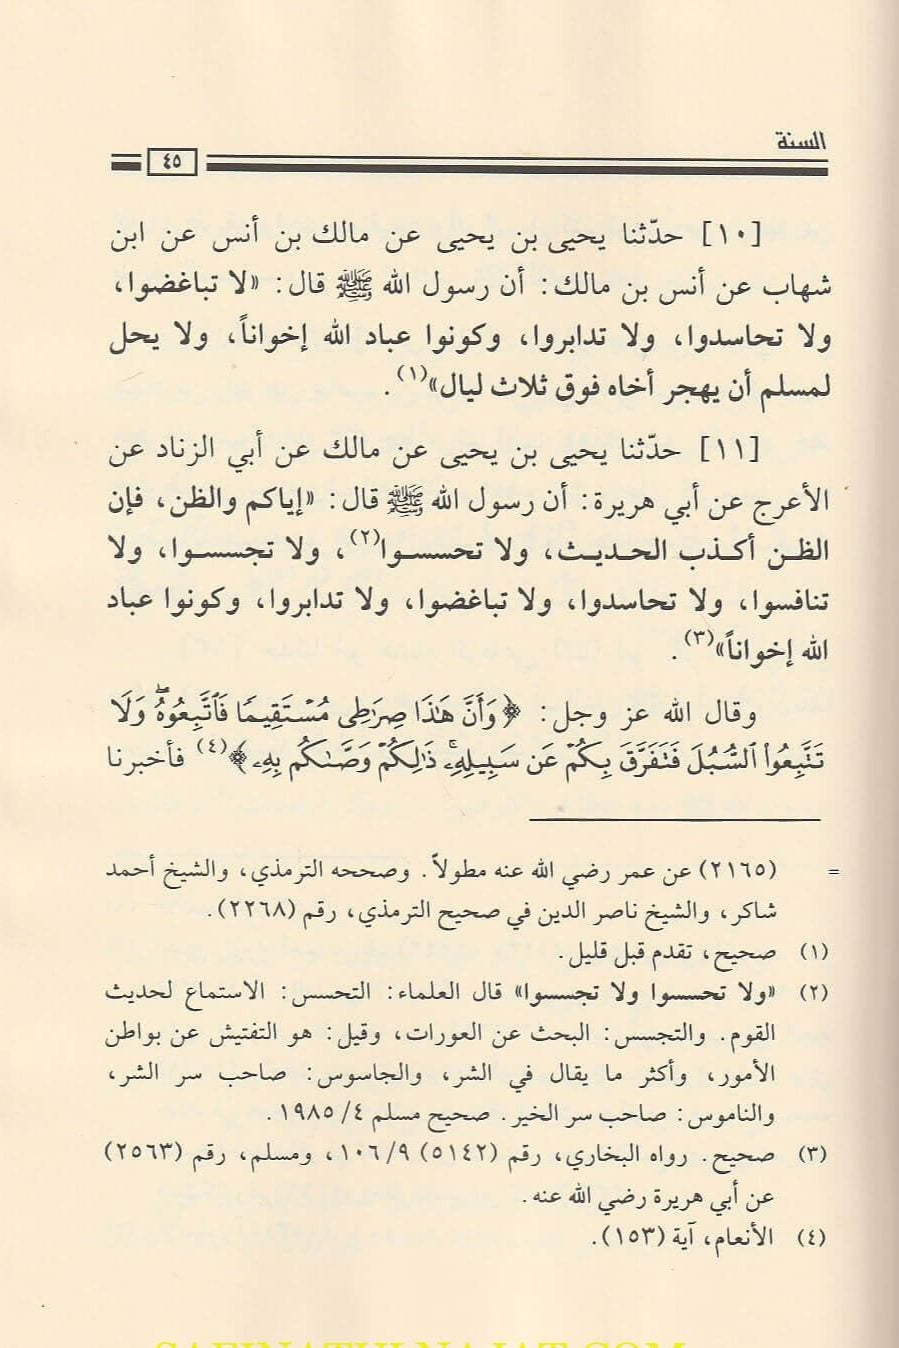 السنة
٤٥
[١٠] حدّثنا يحيى بن يحيى عن مالك بن أنس عن ابن
شهاب عن أنس بن مالك: أن رسول الله ﷺ قال: «لا تباغضوا،
ولا تحاسدوا، ولا تدابروا، وكونوا عباد الله إخواناً، ولا يحل
لمسلم أن يهجر أخاه فوق ثلاث ليال»(١).
[١١] حدّثنا يحيى بن يحيى عن مالك عن أبي الزناد عن
الأعرج عن أبي هريرة: أن رسول الله ﷺ قال: «إياكم والظن، فإن
الظن أكذب الحديث، ولا تحسسوا(٢)، ولا تجسسوا، ولا
تنافسوا، ولا تحاسدوا، ولا تباغضوا، ولا تدابروا، وكونوا عباد
الله إخواناً»(٣).
وقال الله عز وجل: ﴿وَأَنَّ هَٰذَا صِرَٰطِى مُسْتَقِيمًا فَٱتَّبِعُوهُ ۖ وَلَا
تَتَّبِعُوا۟ ٱلسُّبُلَ فَتَفَرَّقَ بِكُمْ عَن سَبِيلِهِۦ ۚ ذَٰلِكُمْ وَصَّىٰكُم بِهِۦ﴾(٤) فأخبرنا
= (٢١٦٥) عن عمر رضي الله عنه مطولاً. وصححه الترمذي، والشيخ أحمد
شاكر، والشيخ ناصر الدين في صحيح الترمذي، رقم (٢٢٦٨).
(١) صحيح، تقدم قبل قليل.
(٢) «ولا تحسسوا ولا تجسسوا» قال العلماء: التحسس: الاستماع لحديث
القوم. والتجسس: البحث عن العورات، وقيل: هو التفتيش عن بواطن
الأمور، وأكثر ما يقال في الشر، والجاسوس: صاحب سر الشر،
والناموس: صاحب سر الخير. صحيح مسلم ٤/ ١٩٨٥.
(٣) صحيح. رواه البخاري، رقم (٥١٤٢) ٩/ ١٠٦، ومسلم، رقم (٢٥٦٣)
عن أبي هريرة رضي الله عنه.
(٤) الأنعام، آية (١٥٣).
SAFINATULNAJAT.COM